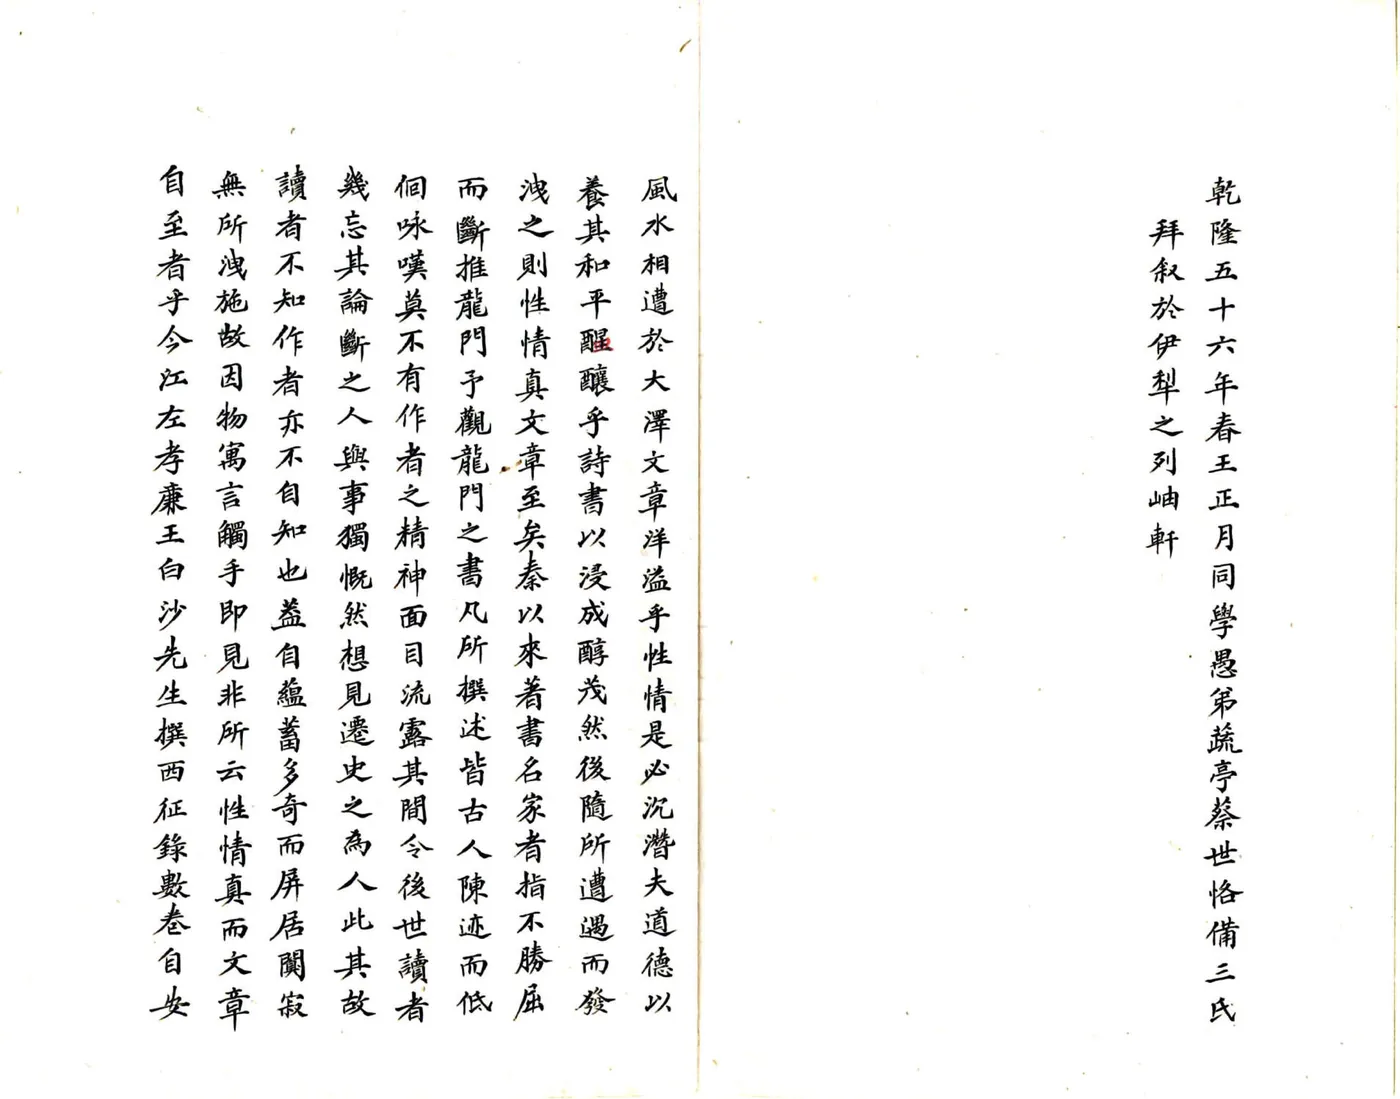 乾隆五十六年春王正月同學愚弟蔬亭蔡世恪備三氏
拜叙於伊犁之列岫軒
風水相遭於大澤文章洋溢乎性情是必沉潛夫道德以
養其和平醞釀乎詩書以浸成醇茂然後隨所遭遇而發
洩之則性情真文章至矣秦以來著書名家者指不勝屈
而斷推龍門予觀龍門之書凡所撰述皆古人陳迹而低
佪咏嘆莫不有作者之精神面目流露其間令後世讀者
幾忘其論斷之人與事獨慨然想見遷史之為人此其故
讀者不知作者亦不自知也葢自蘊蓄多奇而屏居闃寂
無所洩施故因物寓言觸手即見非所云性情真而文章
自至者乎今江左孝廉王白沙先生撰西征錄數卷自安